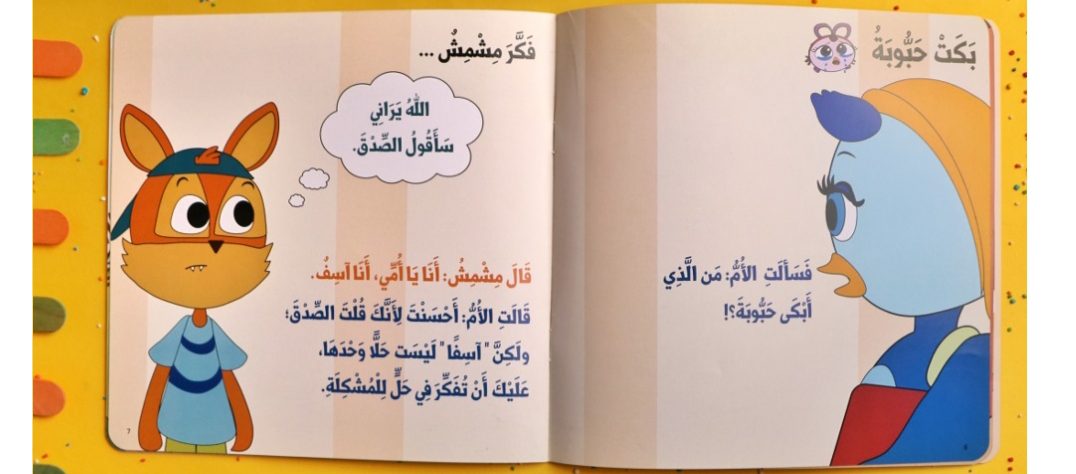 بَكَتْ حَبُّوبَةُ
فَسَأَلَتِ الأُمُّ: مَن الَّذِي
أَبْكَى حَبُّوبَةَ؟!
فَكَّرَ مِشْمِشُ ...
اللهُ يَرَانِي
سَأَقُولُ الصِّدْقَ.
قَالَ مِشْمِشُ: أَنَا يَا أُمِّي، أَنَا آسِفٌ.
قَالَتِ الأُمُّ: أَحْسَنْتَ لِأَنَّكَ قُلْتَ الصِّدْقَ؛
ولَكِنَّ "آسِفًا" لَيْسَت حَلًّا وَحْدَهَا،
عَلَيْكَ أَنْ تُفَكِّرَ فِي حَلٍّ لِلْمُشْكِلَةِ.
7